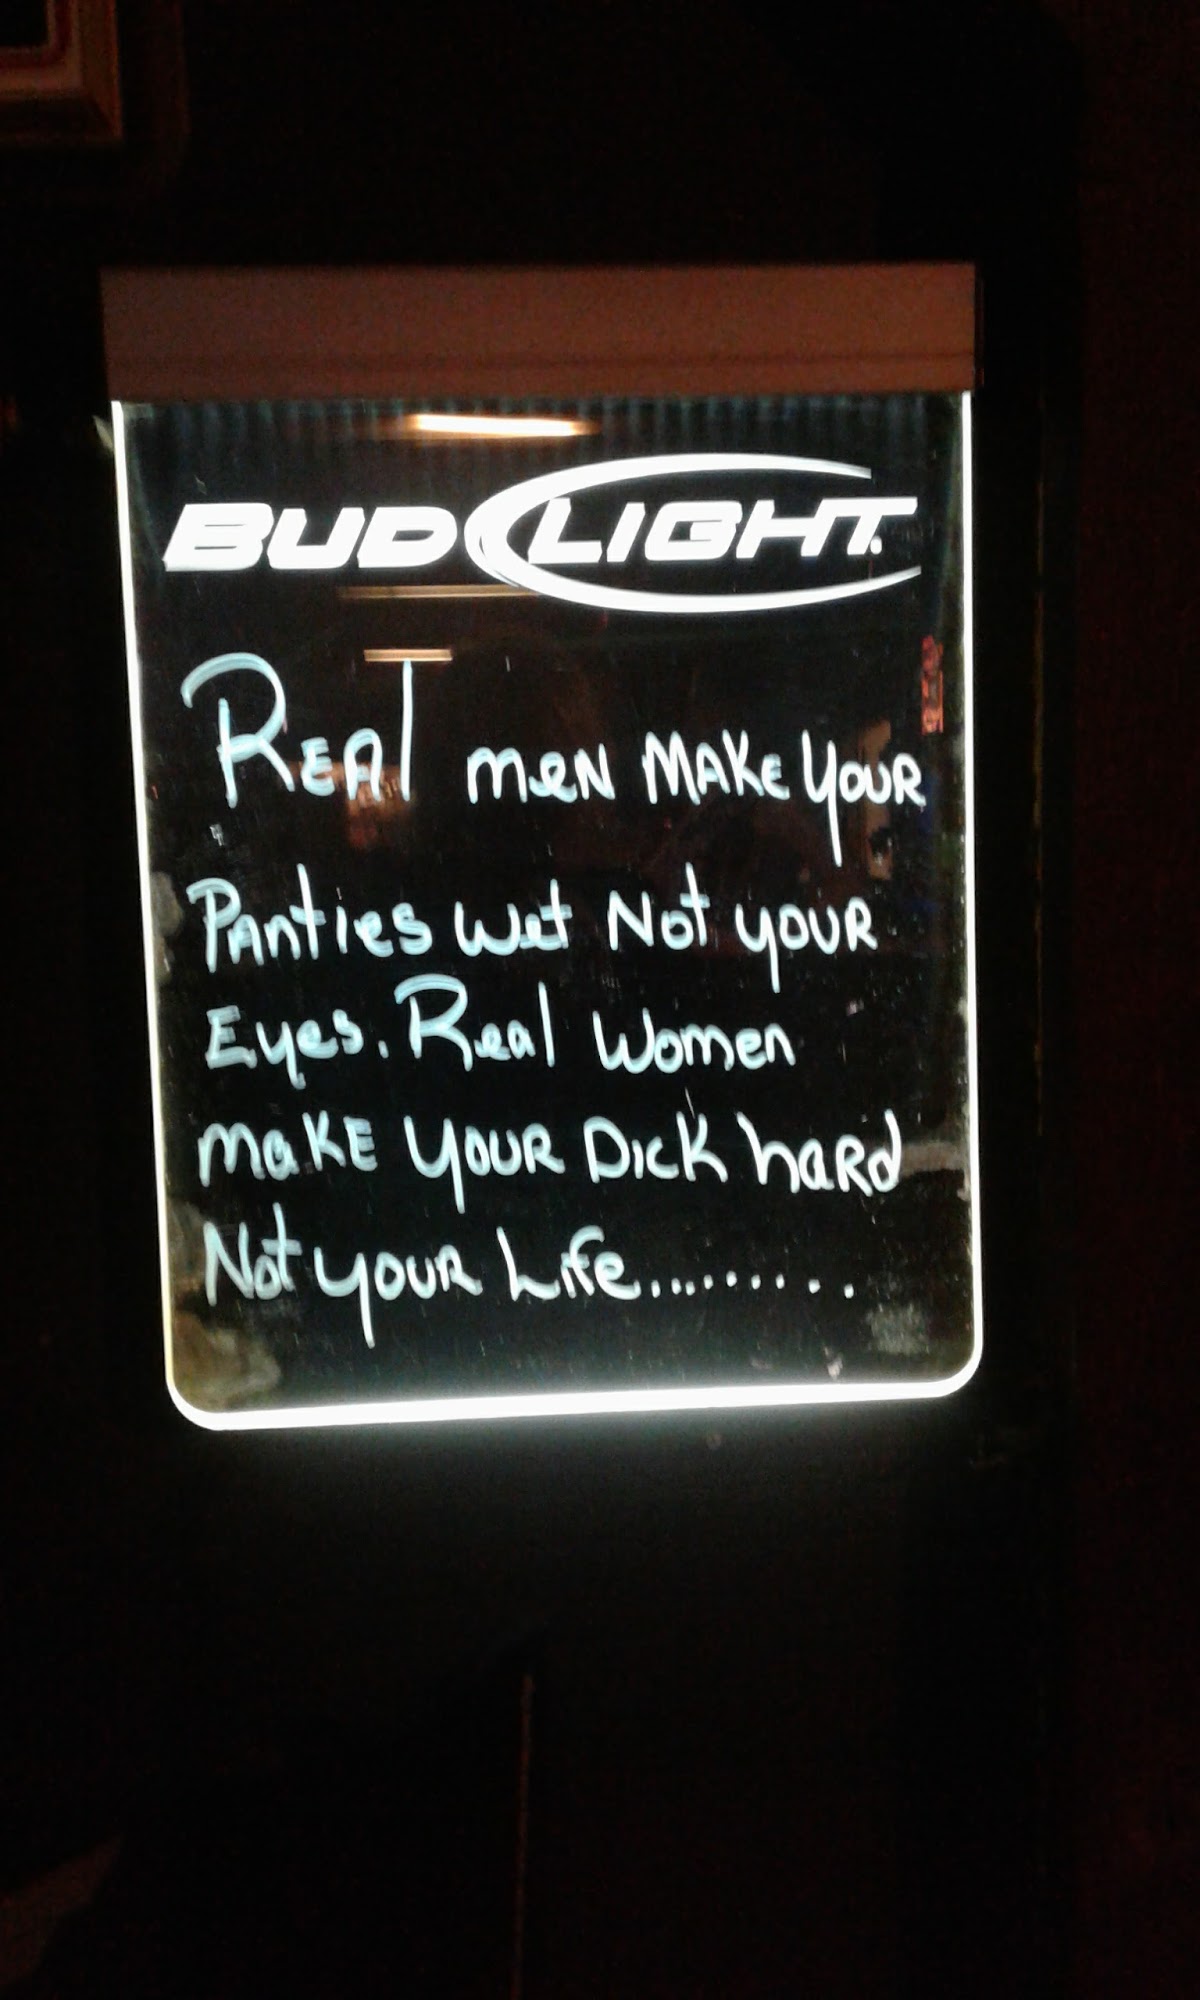 BUD LIGHT.
REAl meN MAKE YOUR
PANties wet Not YOUR
Eyes. Real Women
maKE YOUR DicK haRd
Not YOUR Life.........